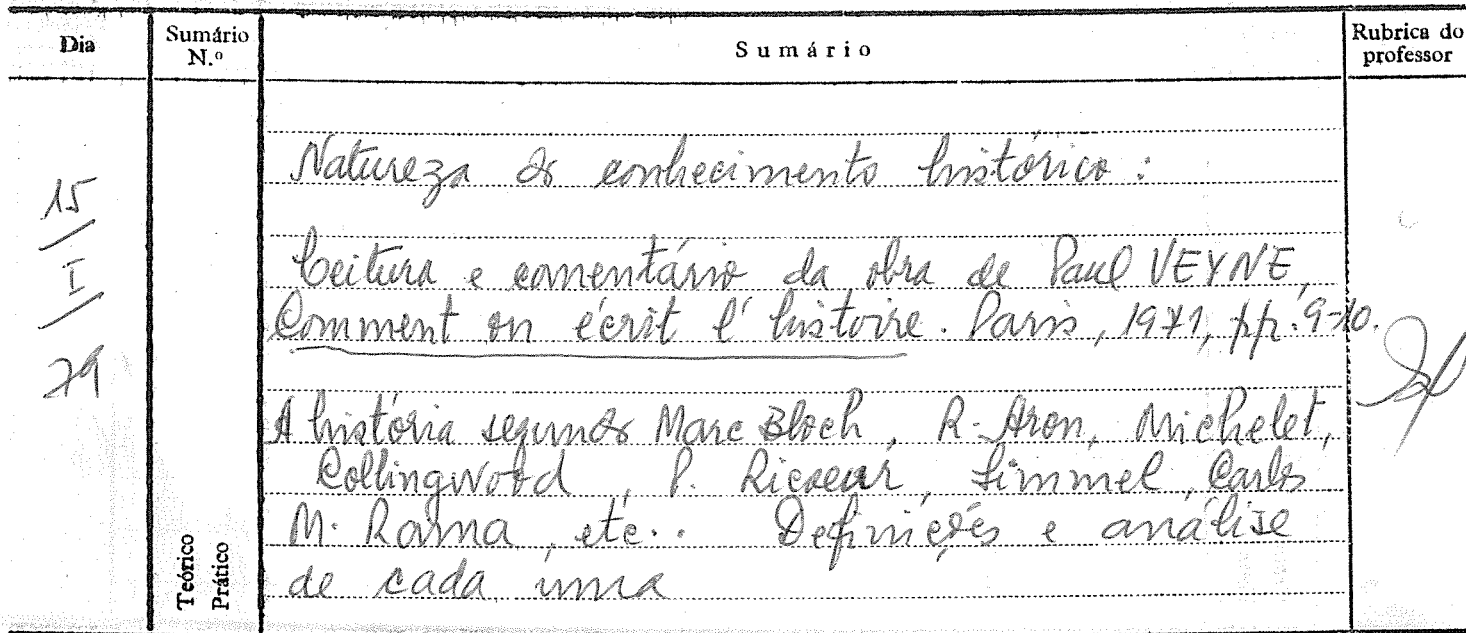 Dia
Sumário N.º
Sumário
Rubrica do professor
15/I/79
Teórico
Prático
Natureza do conhecimento histórico:
Leitura e comentário da obra de Paul VEYNE,
Comment on écrit l'histoire. Paris, 1971, pp. 9-10.
A história segundo Marc Bloch, R. Aron, Michelet,
Collingwood, P. Ricoeur, Simmel, Carlos
M. Rama, etc.. Definições e análise
de cada uma